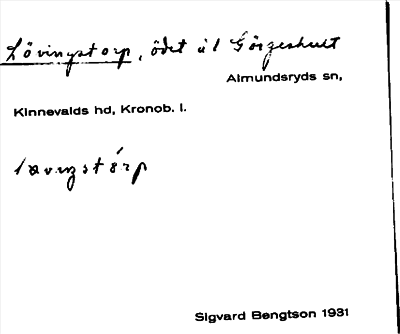 Lövingstorp, ödet u/ Görgeshult
Almundsryds sn,
Kinnevalds hd, Kronob. l.
Sigvard Bengtson 1931